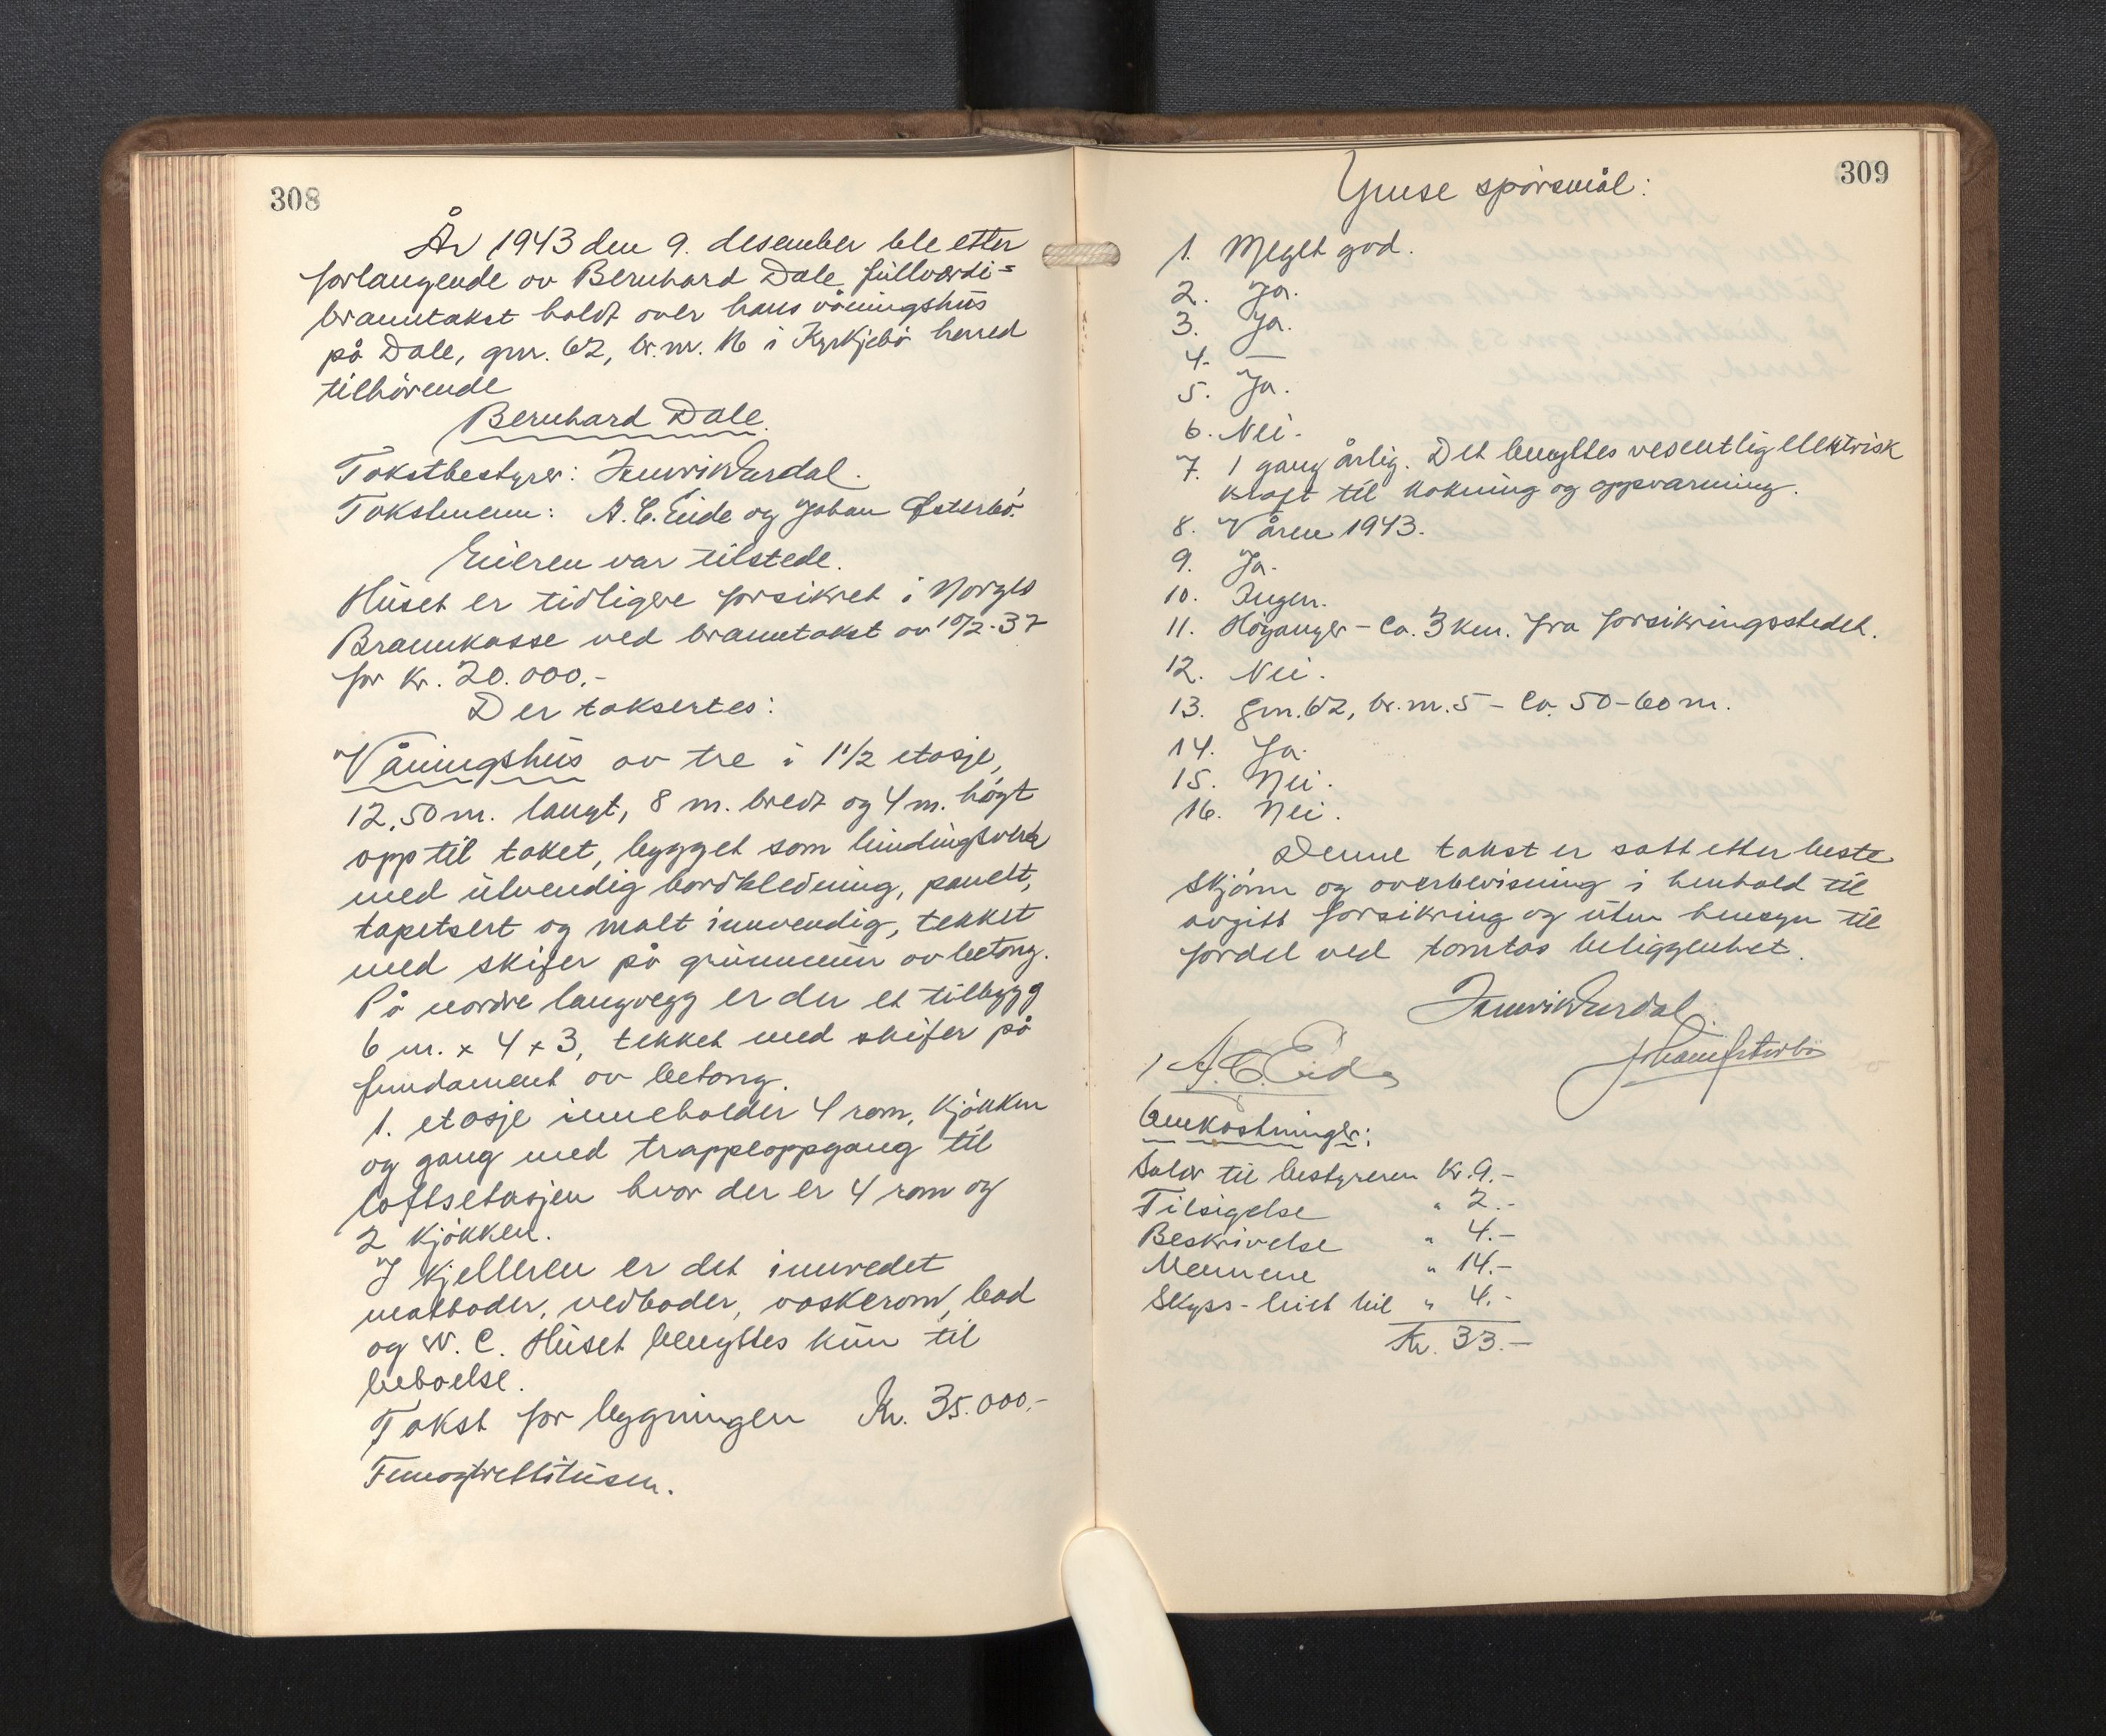 308
År 1943 den 9. desember ble etter
forlangende av Bernhard Dale fullverdi=
branntakst holdt over hans våningshus
på Dale, gnr. 62, br.nr. 16 i Kyrkjebø herred
tilhörende
Bernhard Dale.
Takstbestyrer:
Takstmenn: A. E. Eide og Johan Østerbö.
Eieren var tilstede.
Huset er tidligere forsikret i Norges
Brannkasse ved branntakst av 10/2-37
for kr. 20.000.-
Der taksertes:
Våningshus av tre i 1 1/2 etasje,
12,50 m. langt, 8 m. bredt og 4 m. högt
opp til taket, bygget som bindingsverk
med utvendig bordkledning, panelt,
tapetsert og malt innvendig, tekket
med skifer på grunnmur av betong.
På nordre langvegg er der et tilbygg
6 m. x 4 x 3, tekket med skifer på
fundament av betong.
1. etasje inneholder 4 rom, kjökken
og gang med trappeoppgang til
loftsetasjen hvor der er 4 rom og
2 kjökken.
I kjelleren er det innredet
matboder, vedboder, vaskerom, bad
og W. C. Huset benyttes kun til
beboelse.
Takst for bygningen Kr. 35.000.-
Femogtrettitusen.
309
Ymse spörsmål:
1. Meget god.
2. Ja.
3. Ja.
4. —
5. Ja.
6. Nei.
7. 1 gang årlig. Det benyttes vesentlig elektrisk
kraft til kokning og oppvarming.
8. Våren 1943.
9. Ja.
10. Ingen.
11. Höyanger - ca. 3 km. fra forsikringsstedet.
12. Nei.
13. gnr. 62, br.nr. 5 - ca. 50-60 m.
14. Ja.
15. Nei.
16. Nei.
Denne takst er satt etter beste
skjönn og overbevisning i henhold til
avgitt forsikring og uten hensyn til
fordel ved tomtas beliggenhet.
A. E. Eide Johan Østerbö
Omkostninger:
Salær til bestyreren Kr. 9.-
Tilsigelse " 2.-
Beskrivelse " 4.-
Mennene " 14.-
Skyss - leiet bil " 4.-
Kr. 33.-